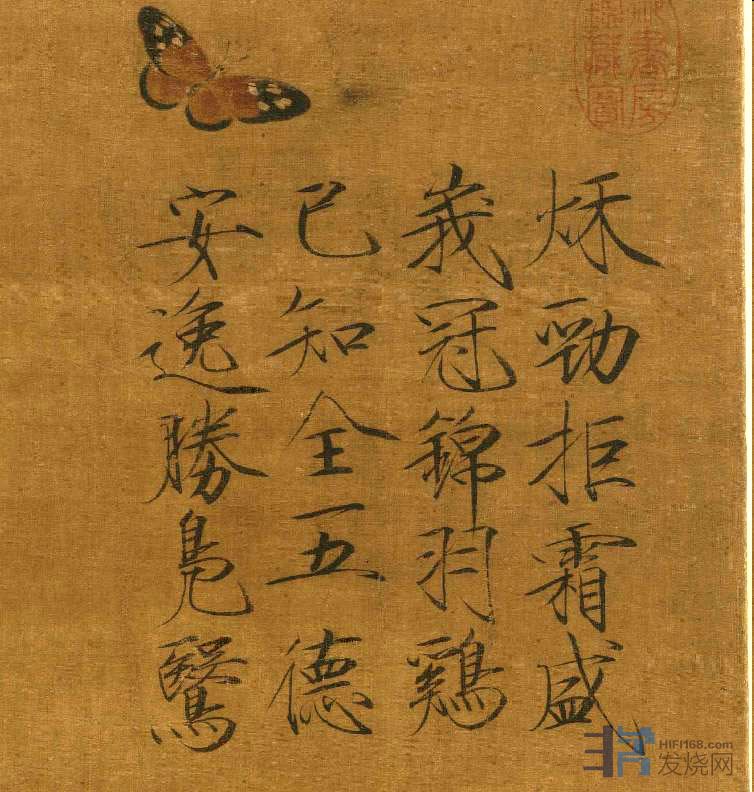 秌勁拒霜盛
峩冠錦羽鷄
已知全五德
安逸勝鳧鷖
HIFI168.com
发烧网